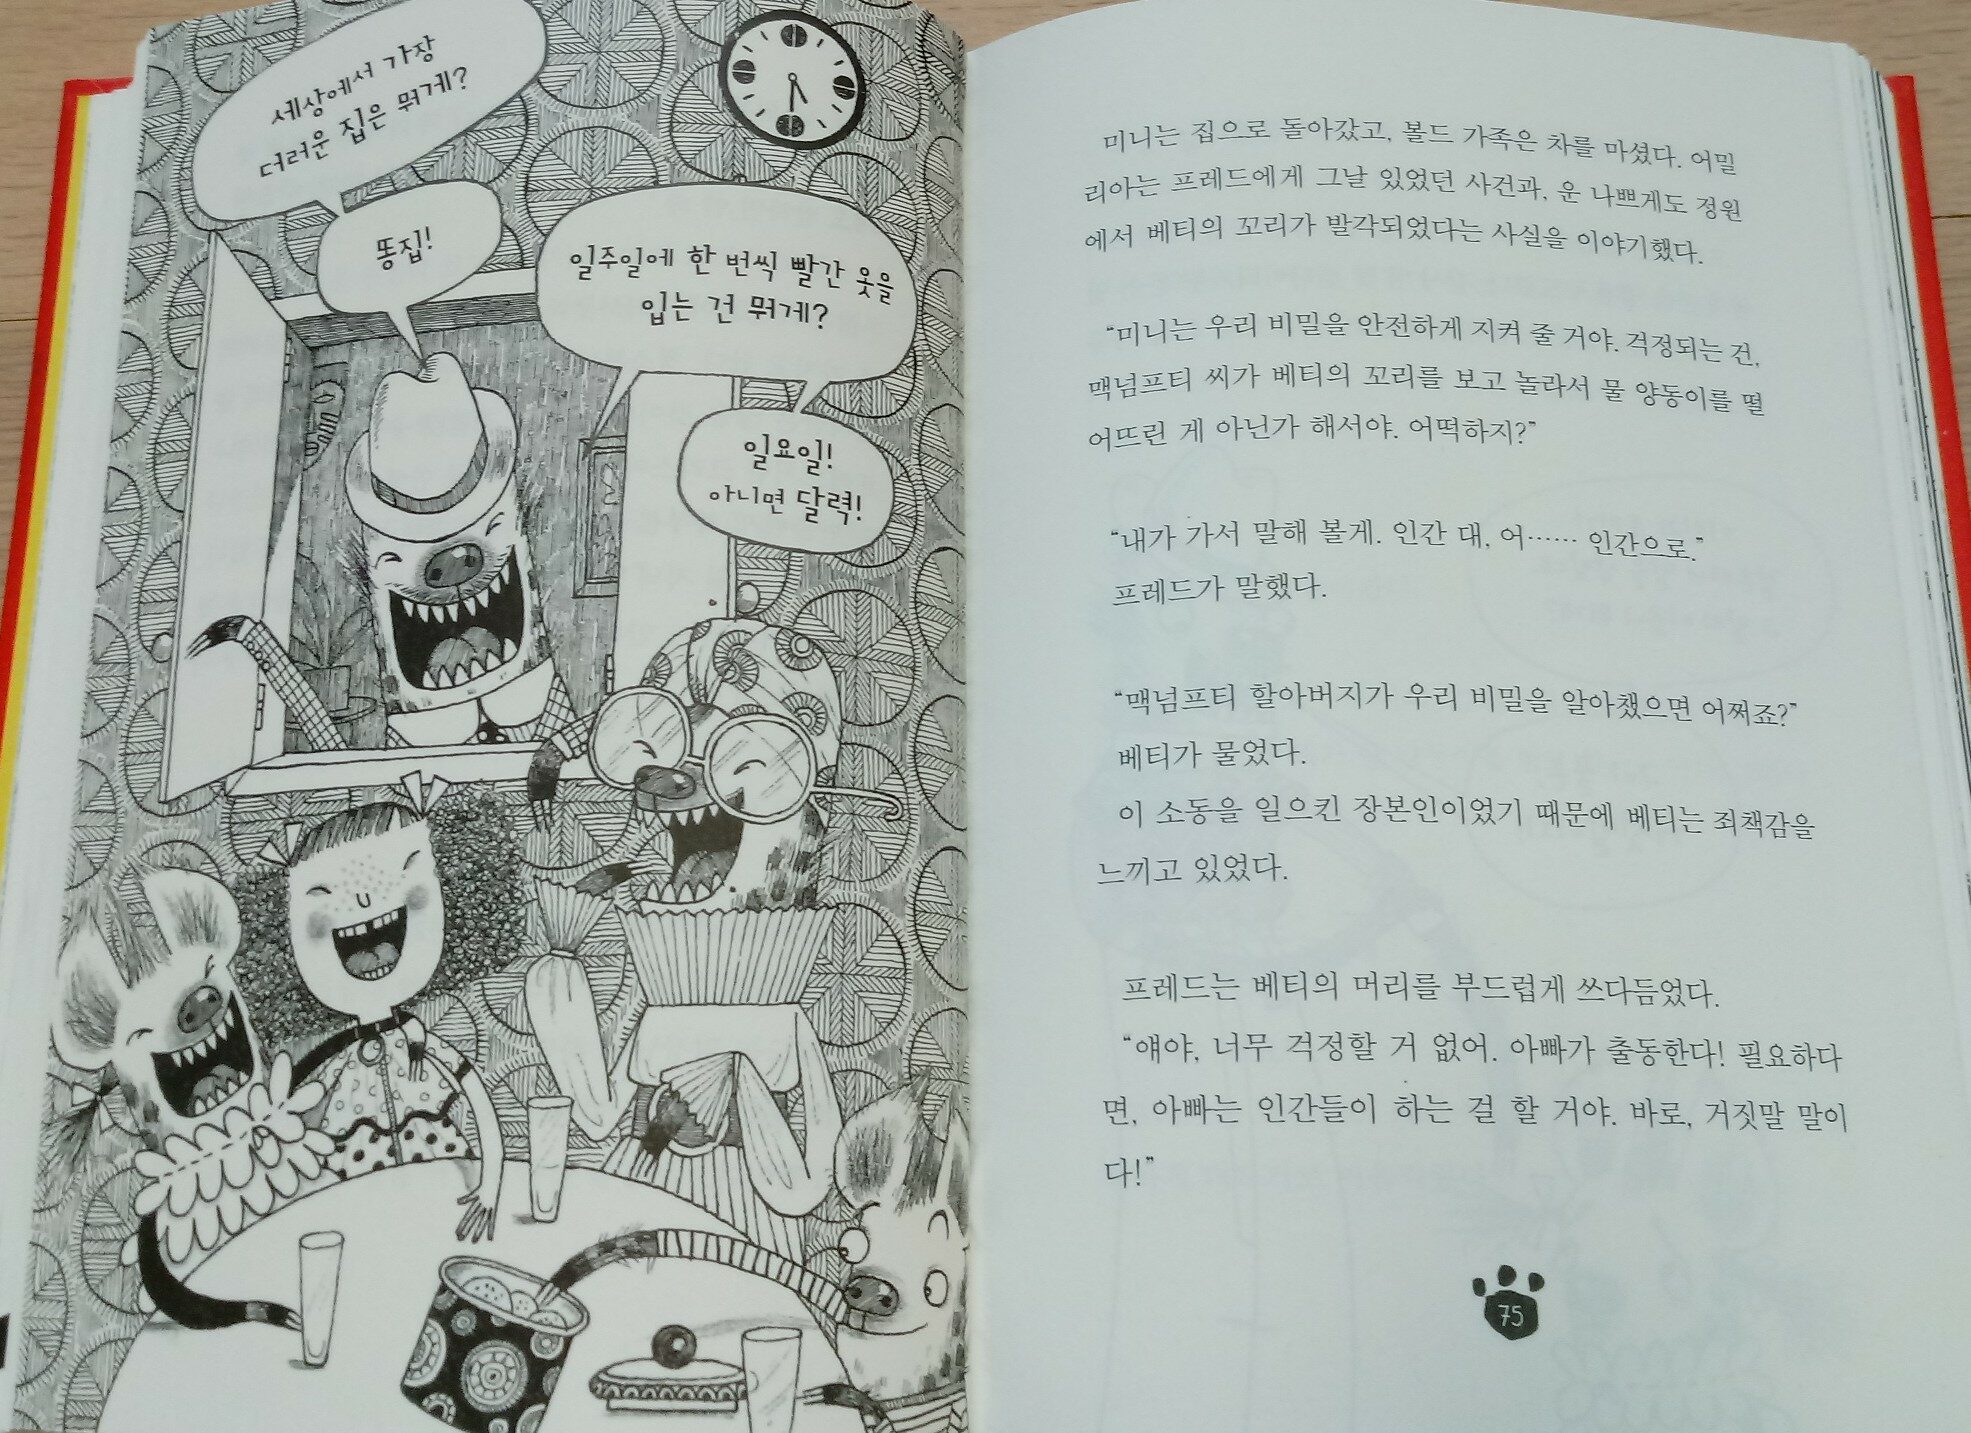 세상에서 가장
더러운 집은 뭐게?
똥집!
일주일에 한 번씩 빨간 옷을
입는 건 뭐게?
일요일!
아니면 달력!
미니는 집으로 돌아갔고, 볼드 가족은 차를 마셨다. 어밀
리아는 프레드에게 그날 있었던 사건과, 운 나쁘게도 정원
에서 베티의 꼬리가 발각되었다는 사실을 이야기했다.
“미니는 우리 비밀을 안전하게 지켜 줄 거야. 걱정되는 건,
맥넘프티 씨가 베티의 꼬리를 보고 놀라서 물 양동이를 떨
어뜨린 게 아닌가 해서야. 어떡하지?”
“내가 가서 말해 볼게. 인간 대, 어…… 인간으로.”
프레드가 말했다.
“맥넘프티 할아버지가 우리 비밀을 알아챘으면 어쩌죠?”
베티가 물었다.
이 소동을 일으킨 장본인이었기 때문에 베티는 죄책감을
느끼고 있었다.
프레드는 베티의 머리를 부드럽게 쓰다듬었다.
“얘야, 너무 걱정할 거 없어. 아빠가 출동한다! 필요하다
면, 아빠는 인간들이 하는 걸 할 거야. 바로, 거짓말 말이
다!”
75